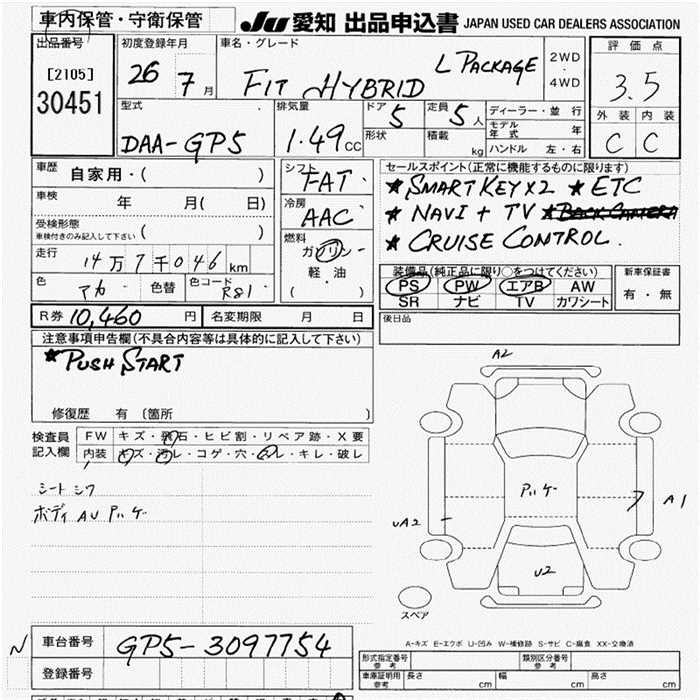 車内保管・守衛保管
JU 愛知 出品申込書 JAPAN USED CAR DEALERS ASSOCIATION
出品番号
[2105]
30451
初度登録年月
26 7月
車名・グレード
FIT HYBRID L PACKAGE
2WD
・
4WD
評価点
3.5
外装 内装
C C
型式
DAA-GP5
排気量
1.49cc
ドア 5
形状
定員 5人
積載 kg
ディーラー・並行
モデル年式 年
ハンドル 左・右
車歴 自家用・( )
車検 年 月( 日)
受検形態
車検付きのみ記入して下さい ( )
走行 14万7千046km
色 アカ 色替 色コード R81
シフト
FAT
冷房
AAC
燃料
ガソリン
軽・油
( )
セールスポイント(正常に機能するものに限ります)
★ SMART KEY X2 ★ ETC
★ NAVI + TV ★ BACK CAMERA
★ CRUISE CONTROL.
装備品(純正品に限り○をつけてください)
PS PW エアB AW
SR ナビ TV カワシート
新車保証書
有・無
R券 10,460円 名変期限 月 日
後日品
注意事項申告欄(不具合内容等は具体的に記入して下さい)
★PUSH START
修復歴 有 〔箇所 〕
検査員
記入欄
FW キズ・飛石・ヒビ割・リペア跡・X要
内装 キズ・汚レ・コゲ・穴・スレ・キレ・破レ
シート シワ
ボディ AU Pハケ
A2
Pハケ
UA2
A1
U2
スペア
A-キズ E-エクボ U-凹み W-補修跡 S-サビ C-腐食 XX-交換済
N
車台番号 GP5-3097754
登録番号
形式指定番号
参考
類別区分番号
参考
車庫証明用
参考
長さ cm 幅 cm 高さ cm